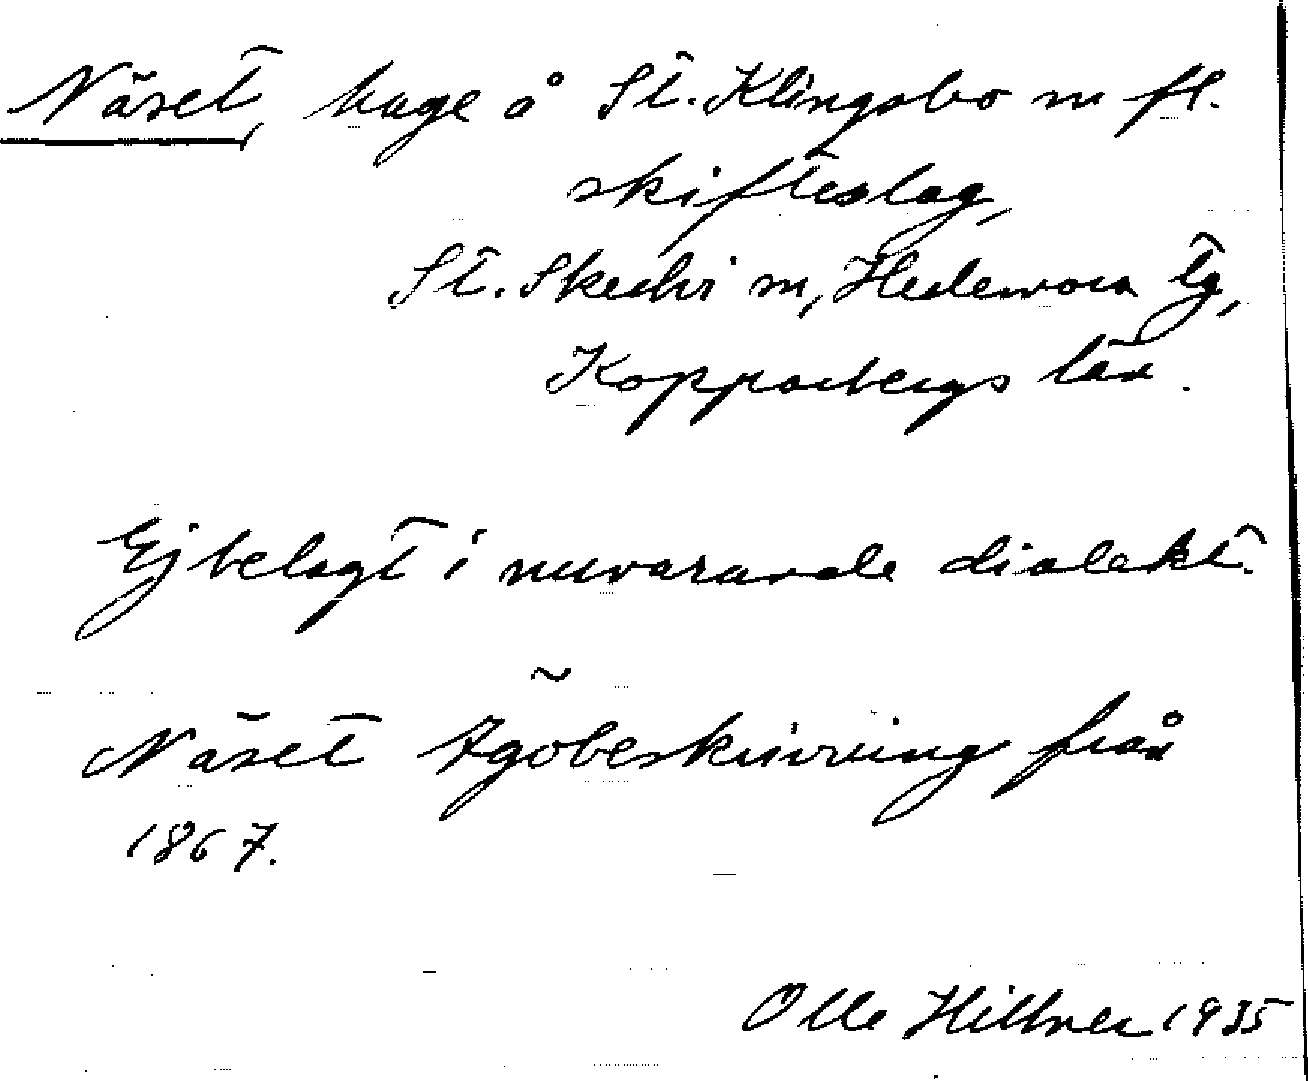 Näset, hage å St. Klingsbo m fl.
skifteslag,
St. Skedvi sn, Hedemora tg,
Kopparbergs län.
Ej belagt i nuvarande dialekt.
Näset Ägobeskrivning från
1867.
Olle Hillner 1935